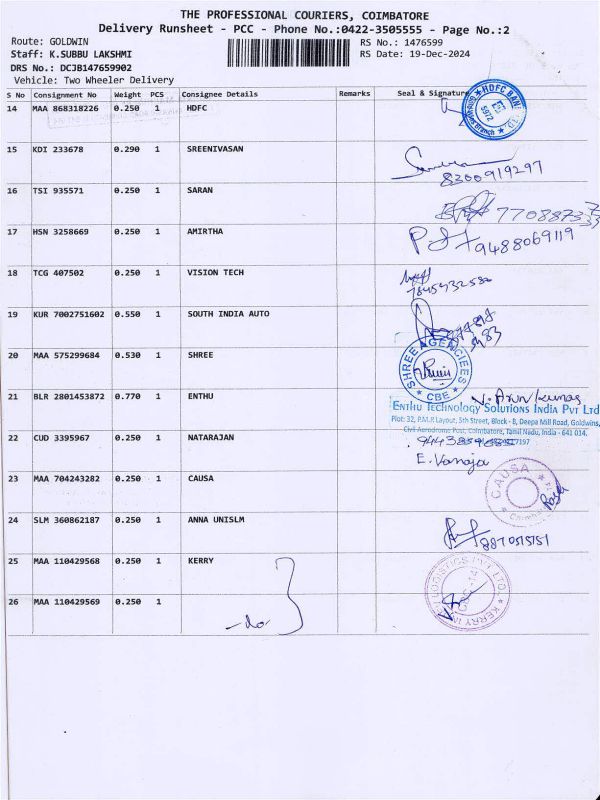 THE PROFESSIONAL COURIERS, COIMBATORE
Delivery Runsheet - PCC - Phone No.:0422-3505555 - Page No.:2
Route: GOLDWIN
RS No.: 1476599
Staff: K.SUBBU LAKSHMI
RS Date: 19-Dec-2024
DRS No.: DCJB147659902
Vehicle: Two Wheeler Delivery
S No Consignment No Weight PCS Consignee Details Remarks Seal & Signature
14 MAA 868318226 0.250 1 HDFC
HDFC BAN
5972
15 KDI 233678 0.290 1 SREENIVASAN
8300919297
16 TSI 935571 0.250 1 SARAN
17 HSN 3258669 0.250 1 AMIRTHA
9488069119
18 TCG 407502 0.250 1 VISION TECH
7845432580
19 KUR 7002751602 0.550 1 SOUTH INDIA AUTO
20 MAA 575299684 0.530 1 SHREE
SHREE AGENCIEES
CBE
21 BLR 2801453872 0.770 1 ENTHU
V. Arun kumar
ENTHU TECHNOLOGY SOLUTIONS INDIA PVT LTD
Plot: 32, P.M.R Layout, 5th Street, Block - B, Deepa Mill Road, Goldwins,
Civil Aerodrome Post, Coimbatore, Tamil Nadu, India - 641 014.
22 CUD 3395967 0.250 1 NATARAJAN
E. Vanaja
23 MAA 704243282 0.250 1 CAUSA
CAUSA
24 SLM 360862187 0.250 1 ANNA UNISLM
8870515151
25 MAA 110429568 0.250 1 KERRY
LOGISTICS PVT LTD.
KERRY IN
26 MAA 110429569 0.250 1
-do-